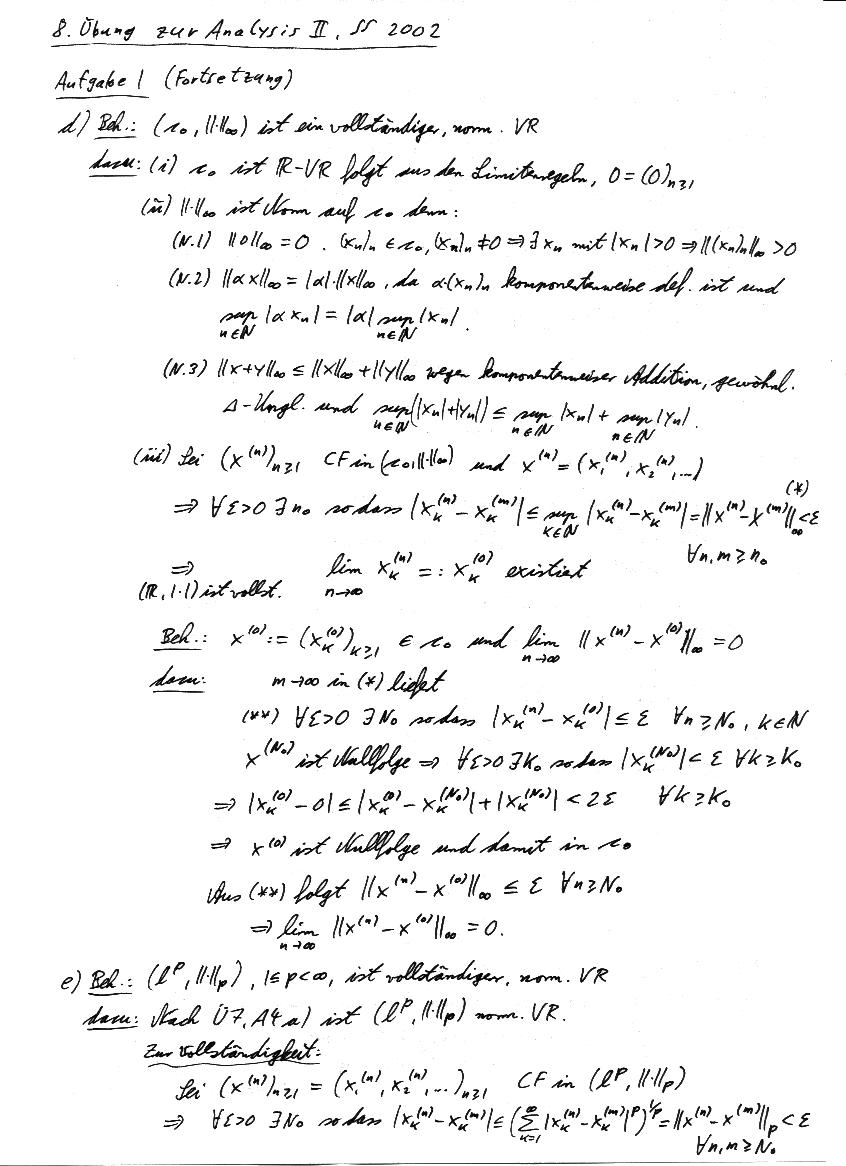 8. Übung zur Analysis II, SS 2002
Aufgabe 1 (Fortsetzung)
d) Beh.: (c₀, ||·||∞) ist ein vollständiger, norm. VR
dazu: (i) c₀ ist ℝ-VR folgt aus den Limitenregeln, 0 = (0)n≥1
(ii) ||·||∞ ist Norm auf c₀ denn:
(N.1) ||0||∞ = 0 . (xn)n ∈ c₀, (xn)n ≠ 0 ⇒ ∃ xn mit |xn| > 0 ⇒ ||(xn)n||∞ > 0
(N.2) ||αx||∞ = |α|·||x||∞, da α·(xn)n komponentenweise def. ist und
sup n∈ℕ |αxn| = |α| sup n∈ℕ |xn| .
(N.3) ||x+y||∞ ≤ ||x||∞ + ||y||∞ wegen komponentenweiser Addition, gewöhnl.
Δ-Ungl. und sup n∈ℕ (|xn|+|yn|) ≤ sup n∈ℕ |xn| + sup n∈ℕ |yn| .
(iii) Sei (x⁽ⁿ⁾)n≥1 CF in (c₀, ||·||∞) und x⁽ⁿ⁾ = (x₁⁽ⁿ⁾, x₂⁽ⁿ⁾, ...)
⇒ ∀ε>0 ∃ n₀ sodass |xk⁽ⁿ⁾ - xk⁽ᵐ⁾| ≤ sup k∈ℕ |xk⁽ⁿ⁾ - xk⁽ᵐ⁾| = ||x⁽ⁿ⁾ - x⁽ᵐ⁾||∞ < ε (*)
∀n,m ≥ n₀
⇒ (ℝ, |·|) ist vollst. lim n→∞ xk⁽ⁿ⁾ =: xk⁽⁰⁾ existiert
Beh.: x⁽⁰⁾ := (xk⁽⁰⁾)k≥1 ∈ c₀ und lim n→∞ ||x⁽ⁿ⁾ - x⁽⁰⁾||∞ = 0
dazu: m→∞ in (*) liefert
(**) ∀ε>0 ∃N₀ sodass |xk⁽ⁿ⁾ - xk⁽⁰⁾| ≤ ε ∀n≥N₀, k∈ℕ
x⁽ᴺ⁰⁾ ist Nullfolge ⇒ ∀ε>0 ∃K₀ sodass |xk⁽ᴺ⁰⁾| < ε ∀k≥K₀
⇒ |xk⁽⁰⁾ - 0| ≤ |xk⁽⁰⁾ - xk⁽ᴺ⁰⁾| + |xk⁽ᴺ⁰⁾| < 2ε ∀k≥K₀
⇒ x⁽⁰⁾ ist Nullfolge und damit in c₀
Aus (**) folgt ||x⁽ⁿ⁾ - x⁽⁰⁾||∞ ≤ ε ∀n≥N₀
⇒ lim n→∞ ||x⁽ⁿ⁾ - x⁽⁰⁾||∞ = 0.
e) Beh.: (lᵖ, ||·||p), 1≤p<∞, ist vollständiger, norm. VR
dazu: Nach Ü7, A4a) ist (lᵖ, ||·||p) norm. VR.
Zur Vollständigkeit:
Sei (x⁽ⁿ⁾)n≥1 = (x₁⁽ⁿ⁾, x₂⁽ⁿ⁾, ...)n≥1 CF in (lᵖ, ||·||p)
⇒ ∀ε>0 ∃N₀ sodass |xk⁽ⁿ⁾ - xk⁽ᵐ⁾| ≤ (∑ k=1 ∞ |xk⁽ⁿ⁾ - xk⁽ᵐ⁾|ᵖ)^1/p = ||x⁽ⁿ⁾ - x⁽ᵐ⁾||p < ε
∀n,m≥N₀